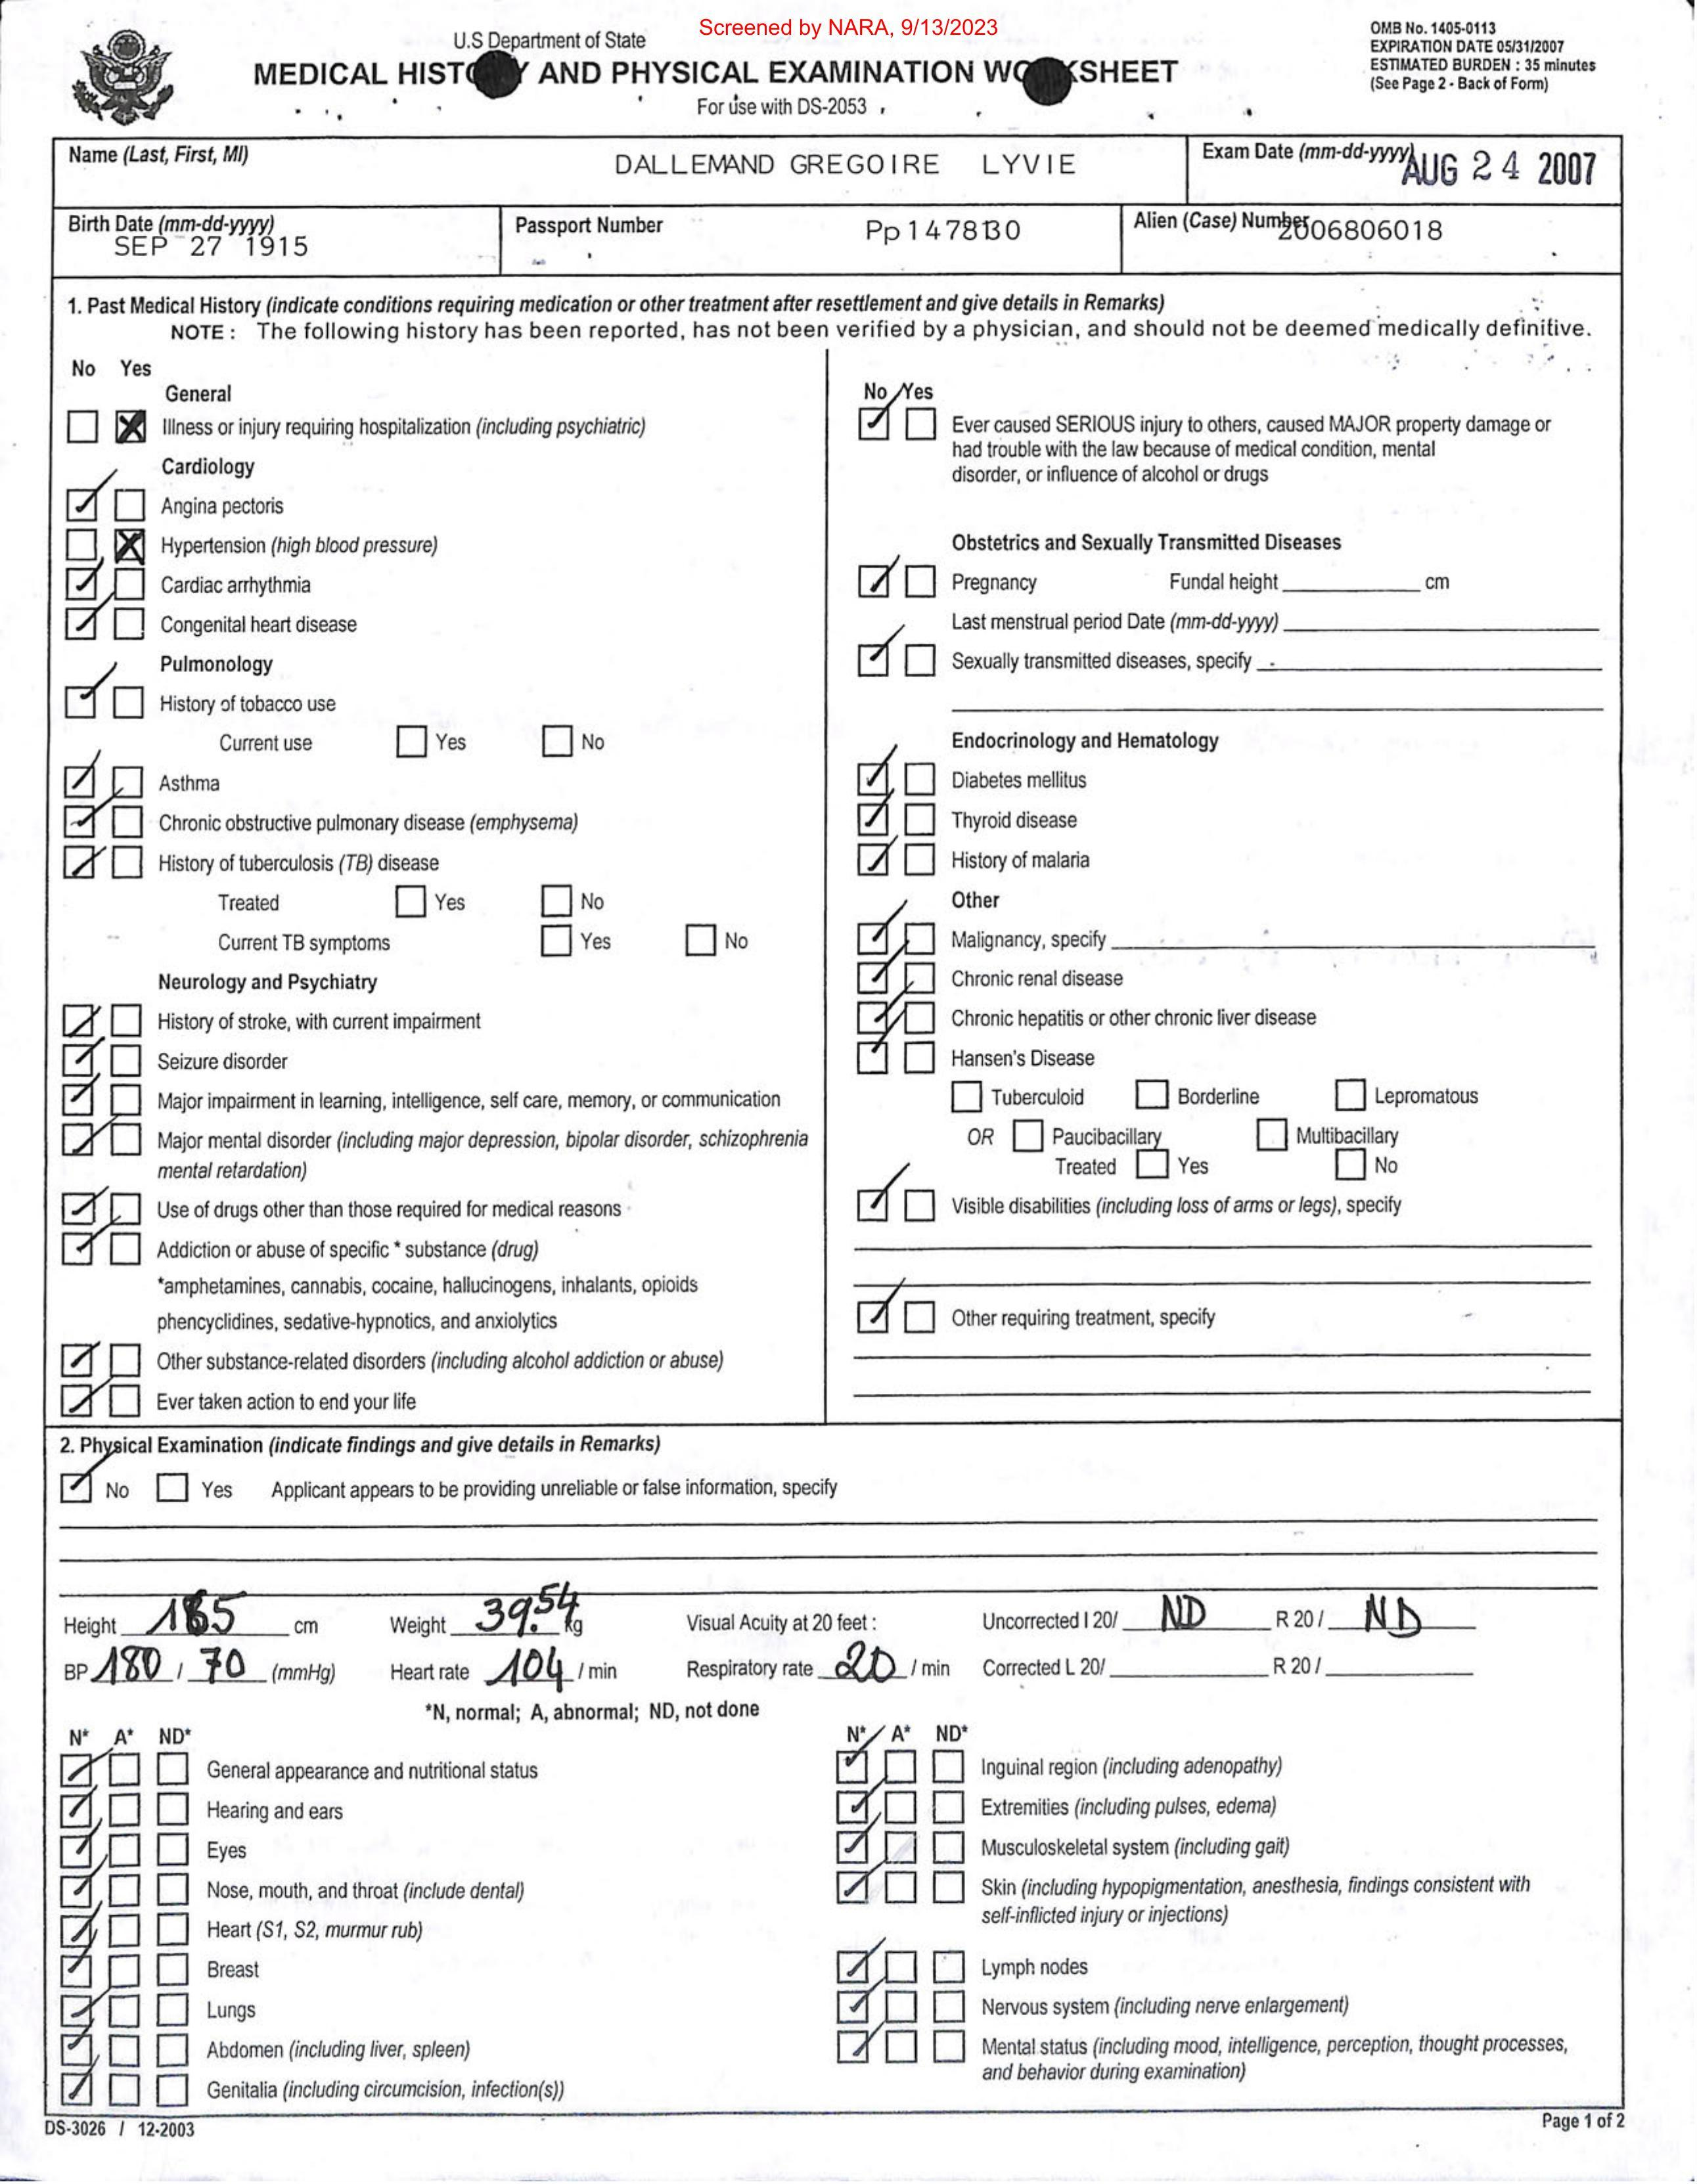 Screened by NARA, 9/13/2023
U.S Department of State
MEDICAL HISTORY AND PHYSICAL EXAMINATION WORKSHEET
For use with DS-2053
OMB No. 1405-0113
EXPIRATION DATE 05/31/2007
ESTIMATED BURDEN : 35 minutes
(See Page 2 - Back of Form)
Name (Last, First, MI)
DALLEMAND GREGOIRE LYVIE
Exam Date (mm-dd-yyyy)
AUG 24 2007
Birth Date (mm-dd-yyyy)
SEP 27 1915
Passport Number
Pp147830
Alien (Case) Number
2006806018
1. Past Medical History (indicate conditions requiring medication or other treatment after resettlement and give details in Remarks)
NOTE : The following history has been reported, has not been verified by a physician, and should not be deemed medically definitive.
No Yes
General
Illness or injury requiring hospitalization (including psychiatric)
Cardiology
Angina pectoris
Hypertension (high blood pressure)
Cardiac arrhythmia
Congenital heart disease
Pulmonology
History of tobacco use
Current use Yes No
Asthma
Chronic obstructive pulmonary disease (emphysema)
History of tuberculosis (TB) disease
Treated Yes No
Current TB symptoms Yes No
Neurology and Psychiatry
History of stroke, with current impairment
Seizure disorder
Major impairment in learning, intelligence, self care, memory, or communication
Major mental disorder (including major depression, bipolar disorder, schizophrenia
mental retardation)
Use of drugs other than those required for medical reasons
Addiction or abuse of specific * substance (drug)
*amphetamines, cannabis, cocaine, hallucinogens, inhalants, opioids
phencyclidines, sedative-hypnotics, and anxiolytics
Other substance-related disorders (including alcohol addiction or abuse)
Ever taken action to end your life
No Yes
Ever caused SERIOUS injury to others, caused MAJOR property damage or
had trouble with the law because of medical condition, mental
disorder, or influence of alcohol or drugs
Obstetrics and Sexually Transmitted Diseases
Pregnancy Fundal height cm
Last menstrual period Date (mm-dd-yyyy)
Sexually transmitted diseases, specify
Endocrinology and Hematology
Diabetes mellitus
Thyroid disease
History of malaria
Other
Malignancy, specify
Chronic renal disease
Chronic hepatitis or other chronic liver disease
Hansen's Disease
Tuberculoid Borderline Lepromatous
OR Paucibacillary Multibacillary
Treated Yes No
Visible disabilities (including loss of arms or legs), specify
Other requiring treatment, specify
2. Physical Examination (indicate findings and give details in Remarks)
No Yes Applicant appears to be providing unreliable or false information, specify
Height 165 cm Weight 39.54 kg Visual Acuity at 20 feet : Uncorrected l 20/ ND R 20 / ND
BP 180 / 70 (mmHg) Heart rate 104 / min Respiratory rate 20 / min Corrected L 20/ R 20 /
*N, normal; A, abnormal; ND, not done
N* A* ND*
General appearance and nutritional status
Hearing and ears
Eyes
Nose, mouth, and throat (include dental)
Heart (S1, S2, murmur rub)
Breast
Lungs
Abdomen (including liver, spleen)
Genitalia (including circumcision, infection(s))
N* A* ND*
Inguinal region (including adenopathy)
Extremities (including pulses, edema)
Musculoskeletal system (including gait)
Skin (including hypopigmentation, anesthesia, findings consistent with
self-inflicted injury or injections)
Lymph nodes
Nervous system (including nerve enlargement)
Mental status (including mood, intelligence, perception, thought processes,
and behavior during examination)
DS-3026 / 12-2003
Page 1 of 2